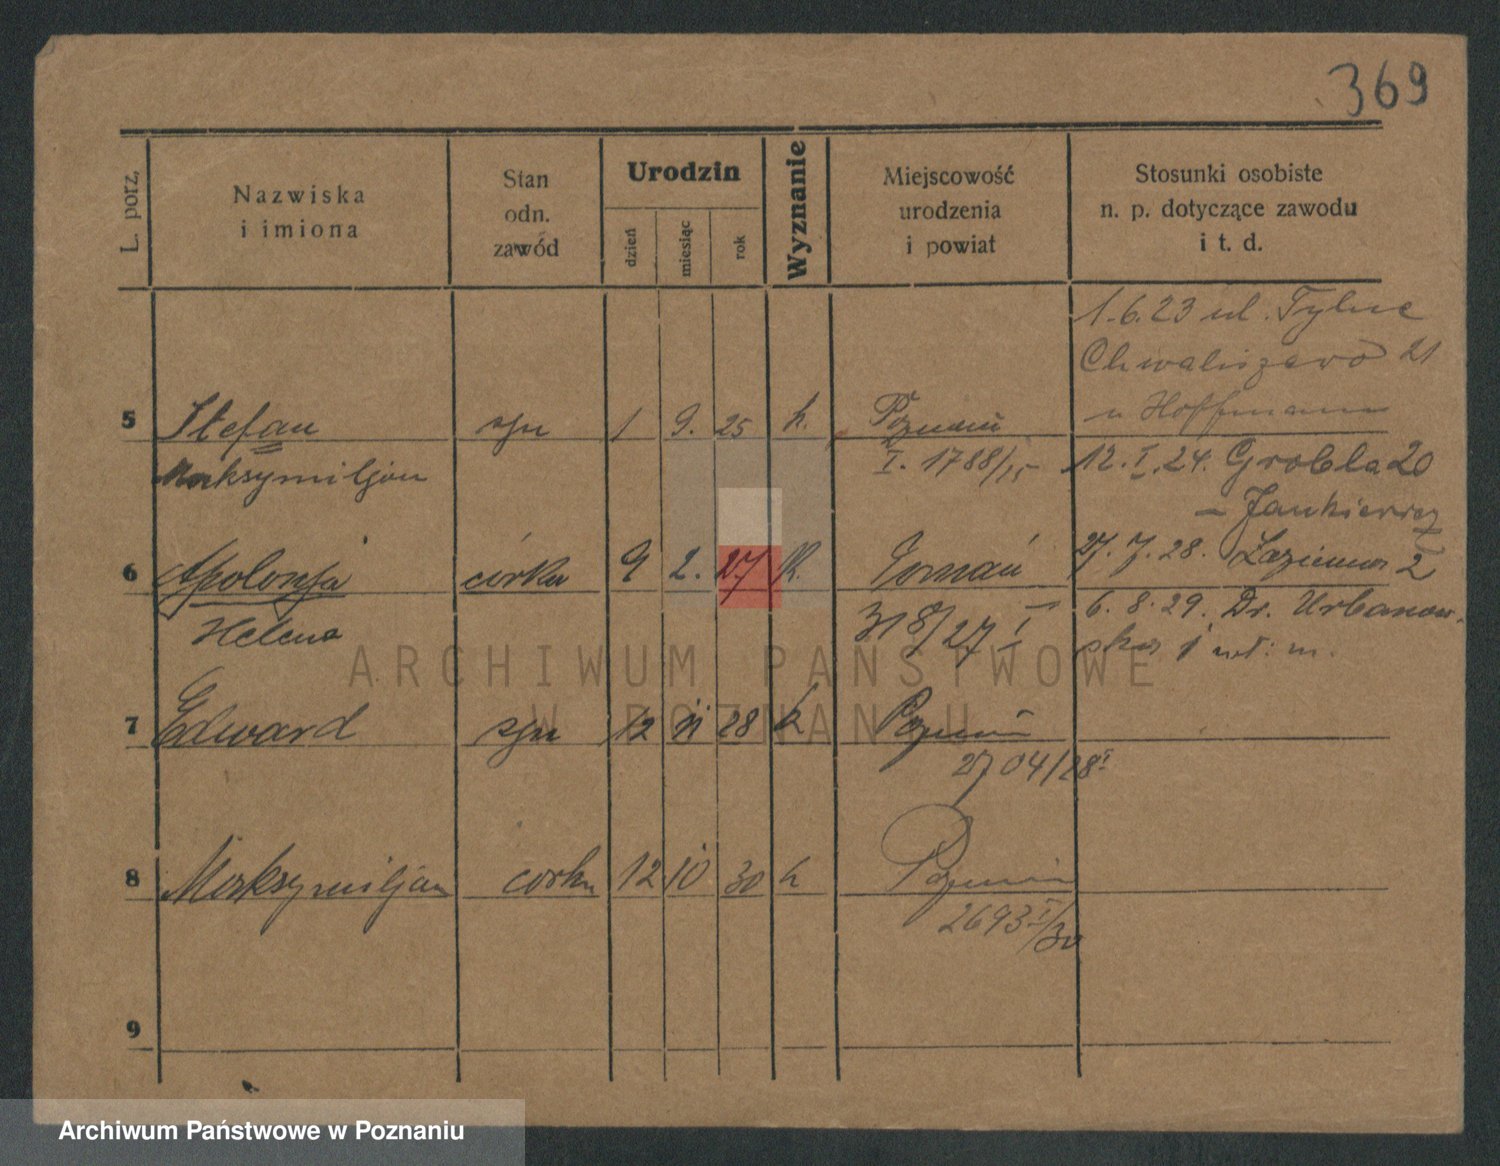 369
L. porz.
Nazwiska
i imiona
Stan
odn.
zawód
Urodzin
dzień
miesiąc
rok
Wyznanie
Miejscowość
urodzenia
i powiat
Stosunki osobiste
n. p. dotyczące zawodu
i t. d.
1.6.23 ul. Tylne
Chwaliszewo 21
u Hoffmann
5 Stefan syn 1 9. 25 k. Poznań
Maksymiljan I. 1788/25 12.I.24. Grobla 20
– Jankiewicz
6 Apolonja córka 9 2. 27 k. Poznań 27.7.28. Łazienna 2
Helena 318/27 I 6.8.29. Dr. Urbanow-
ska 1 wł: m.
7 Edward syn 12 11 28 k Poznań
2704/28 I
8 Maksymiljan córka 12 10 30 k Poznań
2693 I/30
9
ARCHIWUM PAŃSTWOWE
W POZNANIU
Archiwum Państwowe w Poznaniu